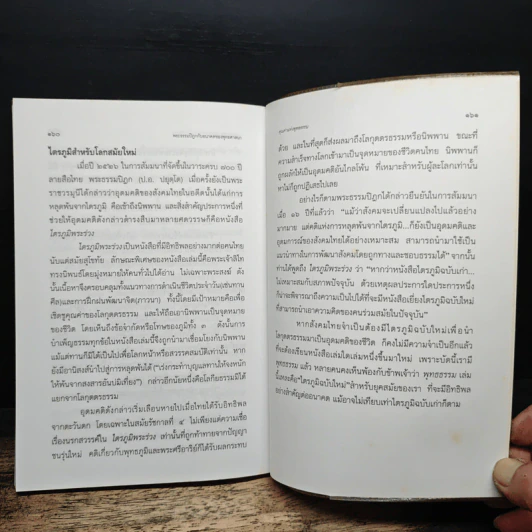 ๑๖๐
พระธรรมปิฎกกับอนาคตของพุทธศาสนา
ไตรภูมิสำหรับโลกสมัยใหม่
เมื่อปี ๒๕๒๖ ในการสัมมนาที่จัดขึ้นในวาระครบ ๗๐๐ ปี
ลายสือไทย พระธรรมปิฎก (ป.อ. ปยุตฺโต) เมื่อครั้งยังเป็นพระ
ราชวรมุนีได้กล่าวว่าอุดมคติของสังคมไทยในอดีตนั้นได้แก่การ
หลุดพ้นจากไตรภูมิ คือเข้าถึงนิพพาน และสิ่งสำคัญประการหนึ่งที่
ช่วยให้อุดมคติดังกล่าวดำรงสืบมาหลายศตวรรษก็คือหนังสือ
ไตรภูมิพระร่วง
ไตรภูมิพระร่วงเป็นหนังสือที่มีอิทธิพลอย่างมากต่อคนไทย
นับแต่สมัยสุโขทัย ลักษณะพิเศษของหนังสือเล่มนี้คือพระเจ้าลิไท
ทรงนิพนธ์โดยมุ่งหมายให้คนทั่วไปได้อ่าน ไม่เฉพาะพระสงฆ์ ดัง
นั้นเนื้อหาจึงครอบคลุมทั้งแนวทางการดำเนินชีวิตประจำวัน(เช่นทาน
ศีล)และการฝึกฝนพัฒนาจิต(ภาวนา) ทั้งนี้โดยมีเป้าหมายคือเพื่อ
เชิดชูคุณค่าของโลกุตตรธรรม และให้ถือเอานิพพานเป็นจุดหมาย
ของชีวิต โดยเห็นถึงข้อจำกัดหรือโทษของภูมิทั้ง ๓ ดังนั้นการ
บำเพ็ญธรรมทุกข้อในหนังสือเล่มนี้จึงถูกนำมาเชื่อมโยงกับนิพพาน
แม้แต่ทานก็มิได้เป็นไปเพื่อโลกหน้าหรือสวรรคสมบัติเท่านั้น หาก
ยังมีอานิสงส์นำไปสู่การหลุดพ้นได้("เร่งกระทำบุญแลทานให้จงหนัก
ให้พ้นจากสงสารอันบ่มิเที่ยง") กล่าวอีกนัยหนึ่งคือโลกียธรรมมิได้
แยกจากโลกุตตรธรรม
อุดมคติดังกล่าวเริ่มเลือนหายไปเมื่อไทยได้รับอิทธิพล
จากตะวันตก โดยเฉพาะในสมัยรัชกาลที่ ๔ ไม่เพียงแต่ความเชื่อ
เรื่องนรกสวรรค์ใน ไตรภูมิพระร่วง เท่านั้นที่ถูกท้าทายจากปัญญา
ชนรุ่นใหม่ คติเกี่ยวกับพุทธภูมิและพระศรีอาริย์ก็ได้รับผลกระทบ
๑๖๑
ด้วย และในที่สุดก็ส่งผลมาถึงโลกุตตรธรรมหรือนิพพาน ขณะที่
ความสำเร็จทางโลกเข้ามาเป็นจุดหมายของชีวิตคนไทย นิพพานก็
ถูกผลักให้เป็นอุดมคติอันไกลโพ้น ที่เหมาะสำหรับผู้ละโลกเท่านั้น
หาไม่ก็ถูกปฏิเสธไปเลย
อย่างไรก็ตามพระธรรมปิฎกได้กล่าวยืนยันในการสัมมนา
เมื่อ ๑๖ ปีที่แล้วว่า "แม้ว่าสังคมจะเปลี่ยนแปลงไปแล้วอย่าง
มากมาย แต่คติแห่งการหลุดพ้นจากไตรภูมิ...ก็ยังเป็นอุดมคติและ
อุดมการณ์ของสังคมไทยได้อย่างเหมาะสม สามารถนำมาใช้เป็น
แนวนำทางในการพัฒนาสังคมโดยถูกทางและชอบธรรมได้" จากนั้น
ท่านได้พูดถึง ไตรภูมิพระร่วง ว่า "หากว่าหนังสือไตรภูมิฉบับเก่า...
ไม่เหมาะสมกับสภาพปัจจุบัน ด้วยเหตุผลประการใดประการหนึ่ง
ก็น่าจะพิจารณาถึงความเป็นไปได้ที่จะมีหนังสือเยี่ยงไตรภูมิฉบับใหม่
ที่สามารถนำเอาความคิดของคนร่วมสมัยในปัจจุบันได้"
หากสังคมไทยจำเป็นต้องมีไตรภูมิฉบับใหม่เพื่อนำ
โลกุตตรธรรมมาเป็นอุดมคติของชีวิต ก็คงไม่มีความจำเป็นอีกแล้ว
ที่จะต้องเขียนหนังสือเล่มใดเล่มหนึ่งขึ้นมาใหม่ เพราะบัดนี้เรามี
พุทธธรรม แล้ว หลายคนคงเห็นพ้องกับข้าพเจ้าว่า พุทธธรรม เล่ม
นี้แหละคือ"ไตรภูมิฉบับใหม่"สำหรับยุคสมัยของเรา ที่จะมีอิทธิพล
อย่างสำคัญต่ออนาคต แม้อาจไม่เทียบเท่าไตรภูมิฉบับเก่าก็ตาม